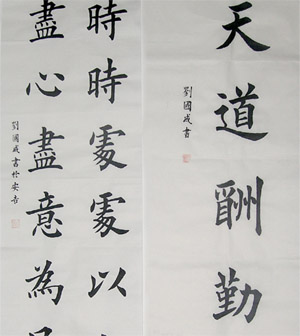 天道酬勤
劉國成書
時時處處以
盡心盡意為
劉國成書於安吉